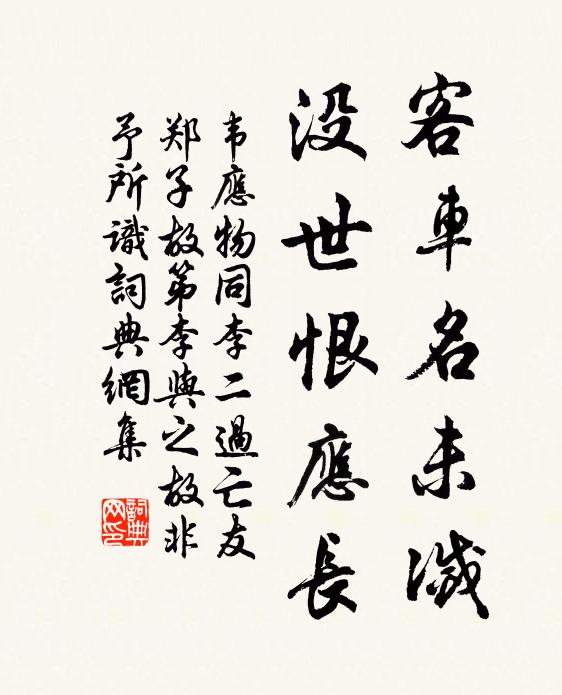 客車名未滅
没世恨應長
韦應物同李二過亡友
郑子故第李與之故非
予所識詞典網集
詞典网印